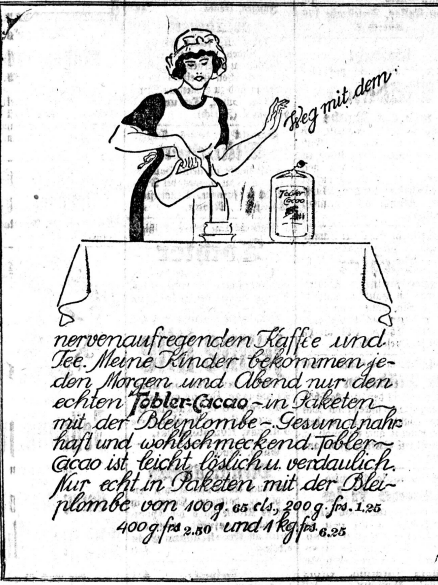 Weg mit dem
Tobler
Cacao
nervenaufregenden Kaffee und
Tee. Meine Kinder bekommen je-
den Morgen und Abend nur den
echten Tobler-Cacao - in Paketen
mit der Bleiplombe -. Gesund, nahr-
haft und wohlschmeckend. Tobler-
Cacao ist leicht löslich u. verdaulich.
Nur echt in Paketen mit der Blei-
plombe von 100 g. 65 cts., 200 g. frs. 1.25
400 g. frs 2.50 und 1 kg. frs. 6.25